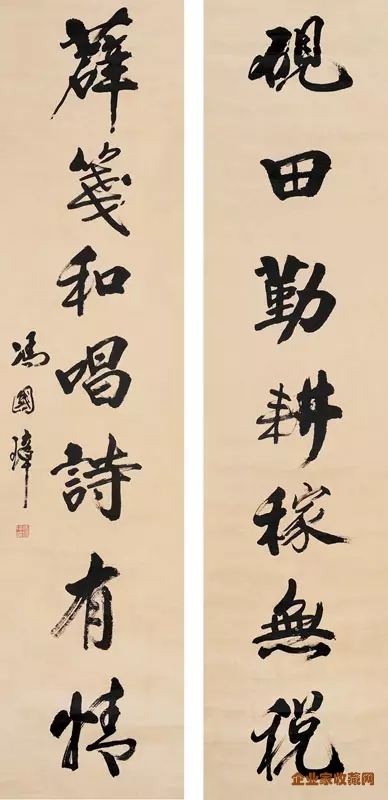 硯田勤耕稼無税
薛箋和唱詩有情
馮國璋
企业家收藏网